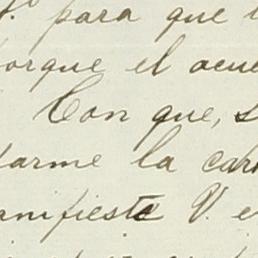 para que
orque el acue
Con que, s
darme la car
anifieste V. e